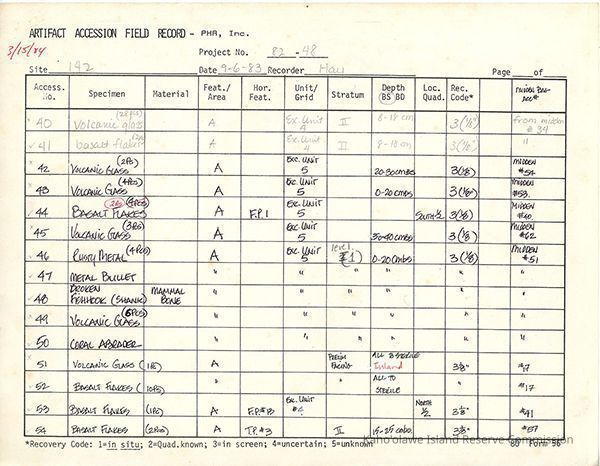 ARTIFACT ACCESSION FIELD RECORD - PHR, Inc.
3/15/84
Project No. 82 - 48
Site 142 Date 9-6-83 Recorder Hau Page of
Access. No. Specimen Material Feat./ Area Hor. Feat. Unit/ Grid Stratum Depth BS BD Loc. Quad. Rec. Code* Midden
40 Volcanic glass (28pcs) A Exc. Unit 4 II 8-18 cm 3(1/8") from midden # 34
41 basalt flakes A Exc. Unit 4 II 8-18 cm 3(1/8") "
42 VOLCANIC GLASS (2PCS) A EXC. UNIT 5 20-30 CMBS 3(1/8) MIDDEN #54
43 VOLCANIC GLASS (4PCS) A EXC. UNIT 5 0-20 CMBS 3(1/8") MIDDEN #53
44 BASALT FLAKES (4PCS) A F.P. 1 EXC. UNIT 5 SOUTH 1/2 3(1/8) MIDDEN #40
45 VOLCANIC GLASS (3PCS) A EXC. UNIT 5 30-40 CMBS 3(1/8) MIDDEN #62
46 RUSTY METAL (4PCS) A EXC. UNIT 5 level (1) 0-20 CMBS 3(1/8) MIDDEN #51
47 METAL BULLET " " " " " "
48 BROKEN FISHHOOK (SHANK) MAMMAL BONE " " " " " "
49 VOLCANIC GLASS (6PCS) " " " " " "
50 CORAL ABRADER " " " " " "
51 VOLCANIC GLASS (1PC) A PRELIM FACING ALL TO STERILE Inland 3/8" #17
52 BASALT FLAKES (10PCS) " " ALL TO STERILE " #17
53 BASALT FLAKES (1PC) A F.P.#13 EXC. UNIT #4 NORTH 1/2 #41
54 BASALT FLAKES (2PCS) A T.P. #3 II 15-25 CMBS 3/8" #57
*Recovery Code: 1=in situ; 2=Quad.known; 3=in screen; 4=uncertain; 5=unknown 80 Form 96
Kaho'olawe Island Reserve Commission